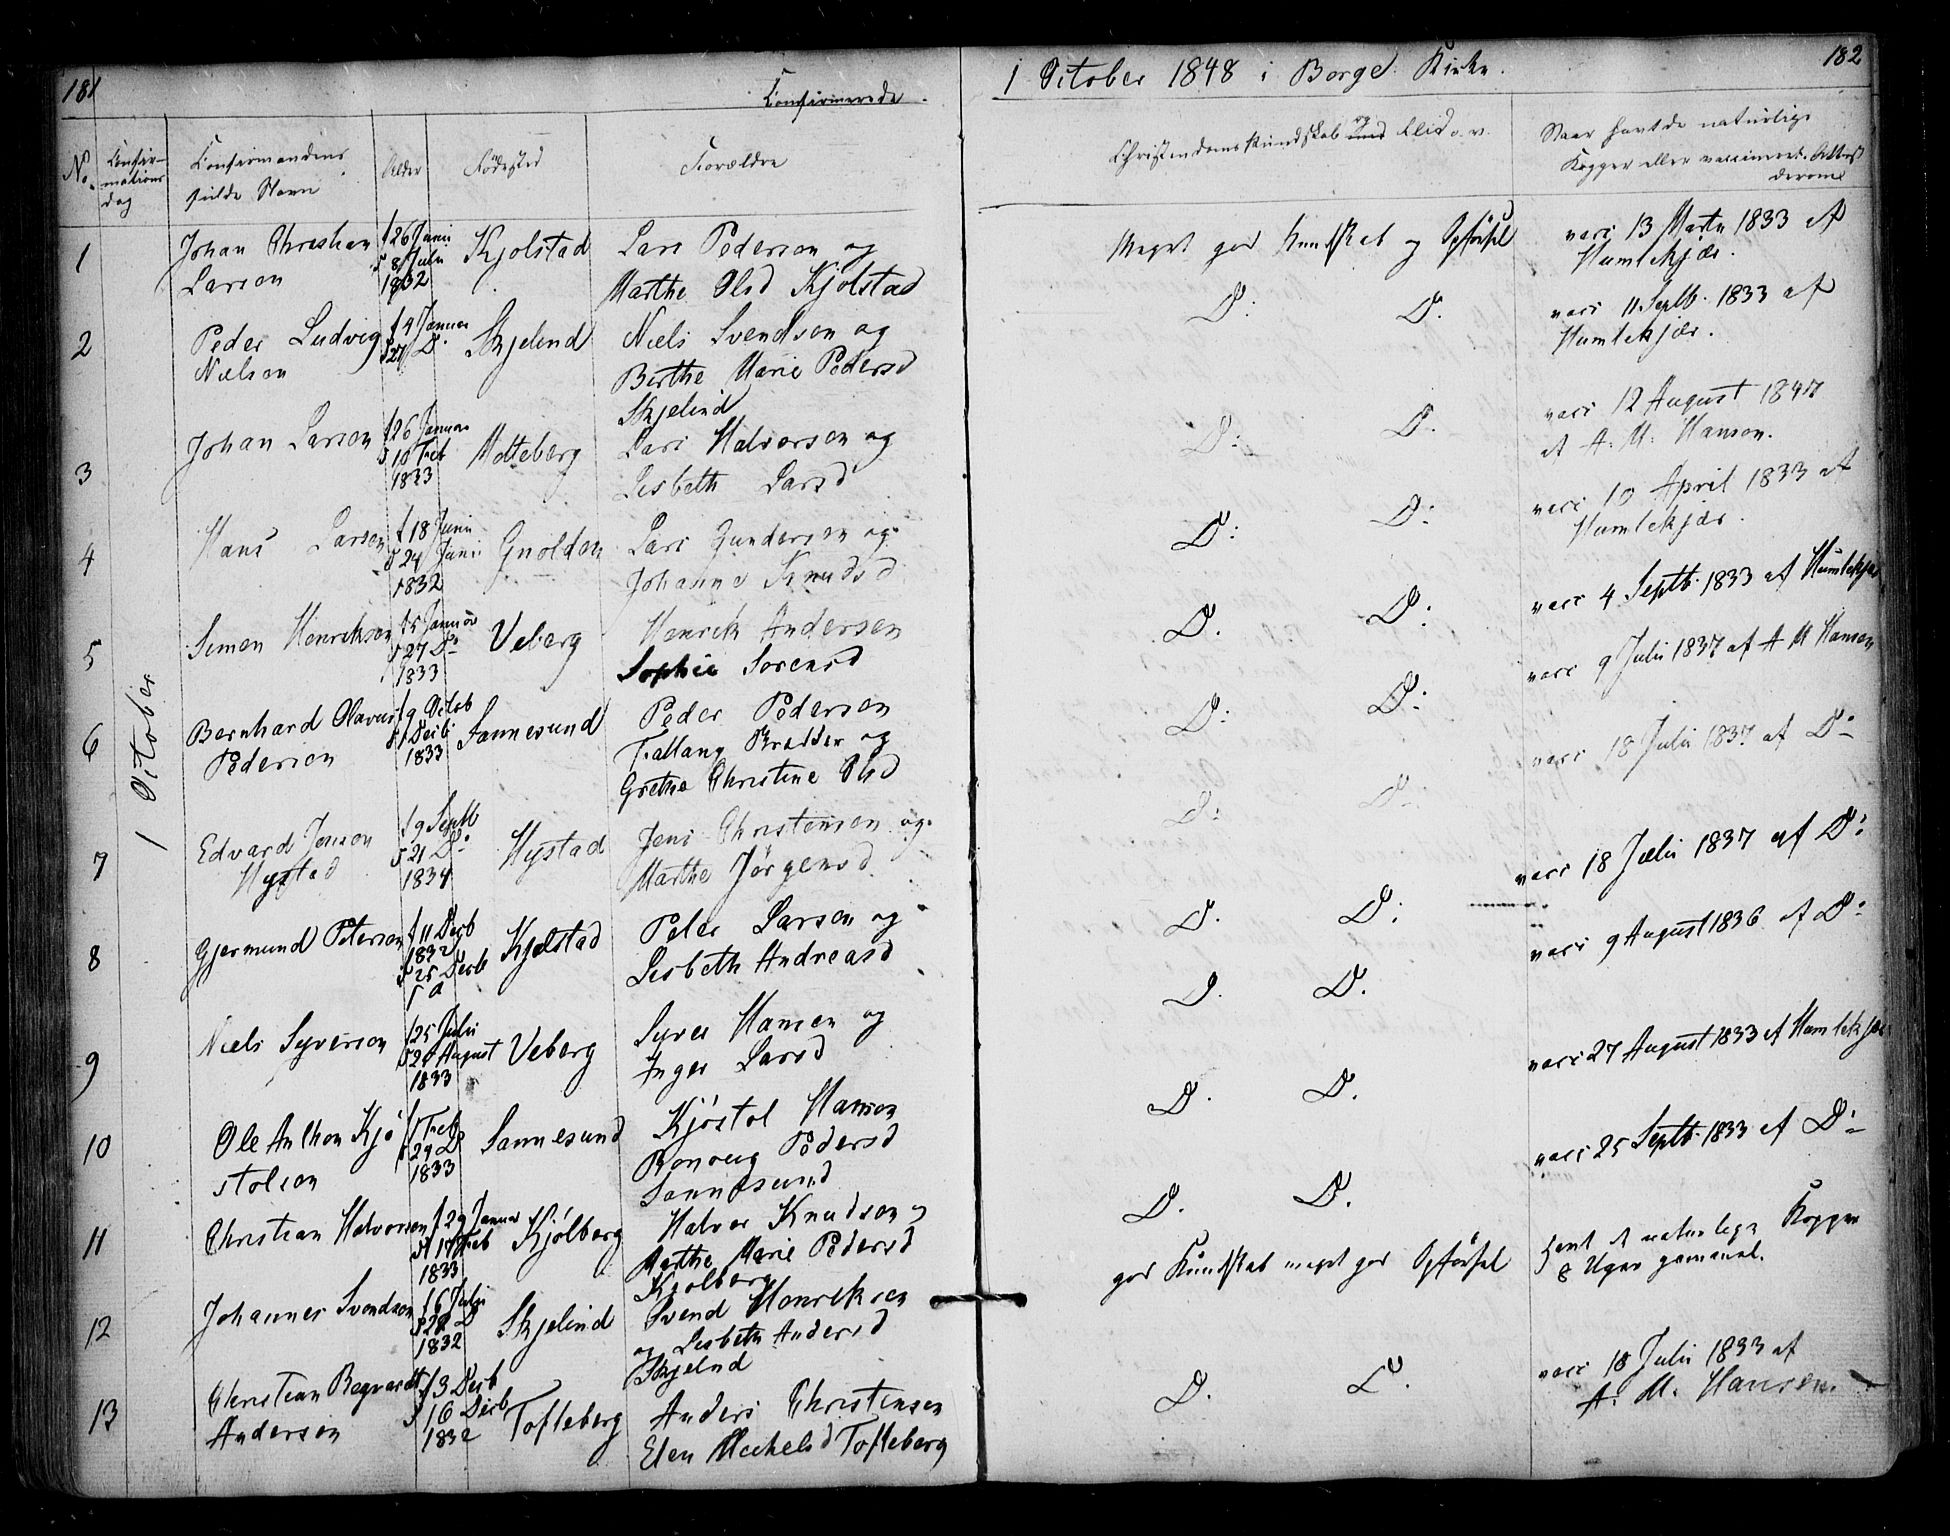 181
Confirmerede
1 October 1848 i Borge Kirke.
182
No.
Confir-
mations
dag
Confirmandens
fulde Navn
Alder
Fødested
Forældre
Christendomskundskab og Flid o. v.
Naar havt de naturlige
Kopper eller vaccineret. Attest
derom
1 October
1
Johan Christian
Larsen
f 26 Junii
d 8 Julii
1832
Kjolstad
Lars Pedersen og
Marthe Olsd Kjolstad
Meget god Kundskab og Opførsel
vacc 13 Marts 1833 af
Humlekjær.
2
Peder Ludvig
Nielsen
f 4 Januar
d 27 D.
Skjelind
Niels Svendsen og
Berthe Marie Pedersd
Skjelind
D: D.
vacc 11 Septb. 1833 af
Humlekjær.
3
Johan Larsen
f 26 Januar
d 10 Feb
1833
Molteberg
Lars Halvorsen og
Lisbeth Larsd
D: D.
vacc 12 August 1847
af A. M. Hansen.
4
Hans Larsen
f 18 Junii
d 24 Junii
1832
Gnolden
Lars Gundersen og
Johanne Knudsd
D: D:
vacc 10 April 1833 af
Humlekjær.
5
Simen Henriksen
f 5 Januar
d 27 D:
1833
Veberg
Henrik Andersen
Sophie Sorensd
D. D.
vacc 4 Septb. 1833 af Humlekjær
6
Bernhard Olavus
Pedersen
f 9 Octob
d 1 Decb
1833
Sannesund
Peder Pedersen
og
Grethe Christine Olsd
D: D:
vacc 9 Julii 1837 af A M Hansen
7
Edvard Jensen
Hystad
f 9 Septb
d 21 D:
1834
Hystad
Jens Christensen og
Marthe Jörgensd
D: D:
vacc 18 Julii 1837 af D:
8
Gjermund Petersen
f 11 Decb
1832
d 25 Decb
Kjølstad
Peter Larsen og
Lisbeth Andreasd
D. D:
vacc 18 Julii 1837 af D:
9
Niels Syversen
f 25 Julii
August
1833
Veberg
Syver Hansen og
Inger Larsd
D. D.
vacc 9 August 1836 af D:
10
Ole Anthon Kjö
stolsen
f 1 Feb
1833
Sannesund
Kjöstol Hansen
Pedersd
Sannesund
D. D.
vacc 27 August 1833 af Humlekjær
11
Christian Halvorsen
f 29 Januar
d 17 Feb
1833
Kjölberg
Halvor Knudsen og
Marthe Marie Pedersd
Kjolberg
D. D.
vacc 25 Septb. 1833 af D:
12
Johannes Svendsen
f 6 Julii
1832
Skjelind
Svend Henriksen
og Lisbeth Andersd
Skjelind
god Kundskab meget god Opførsel
havt de naturlige Kopper
8 Uger gammel.
13
Christian
Andersen
f 3 Decb
d 16 Decb
1832
Tofteberg
Anders Christensen
Elen Mikelsd Tofteberg
D. D.
vacc 18 Julii 1833 af
A. M. Hansen.